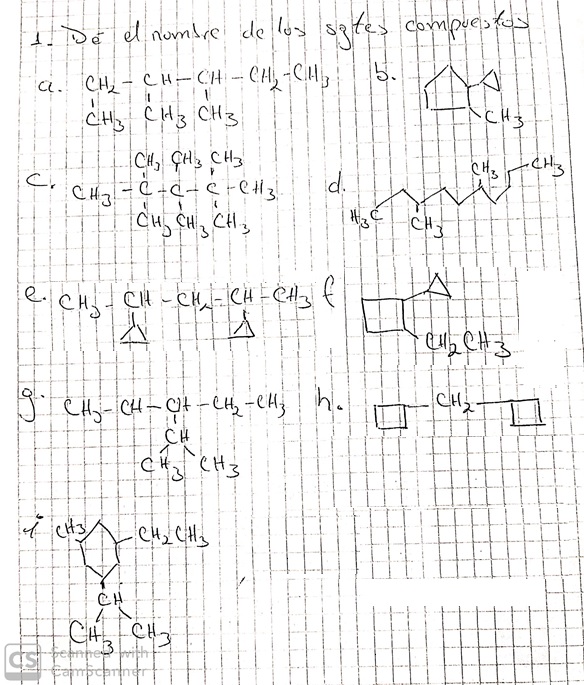 1. Dé el nombre de los sgtes compuestos
a. CH2 - CH - CH - CH2 - CH3
CH3 CH3 CH3
b.
CH3
c. CH3 CH3 CH3
CH3 - C - C - C - CH3
CH3 CH3 CH3
d. CH3 CH3
H3C CH3
e. CH3 - CH - CH2 - CH - CH3
f
CH2CH3
g. CH3 - CH - CH - CH2 - CH3
CH
CH3 CH3
h. CH2
i CH3 CH2CH3
CH
CH3 CH3
CS Scanned with
CamScanner